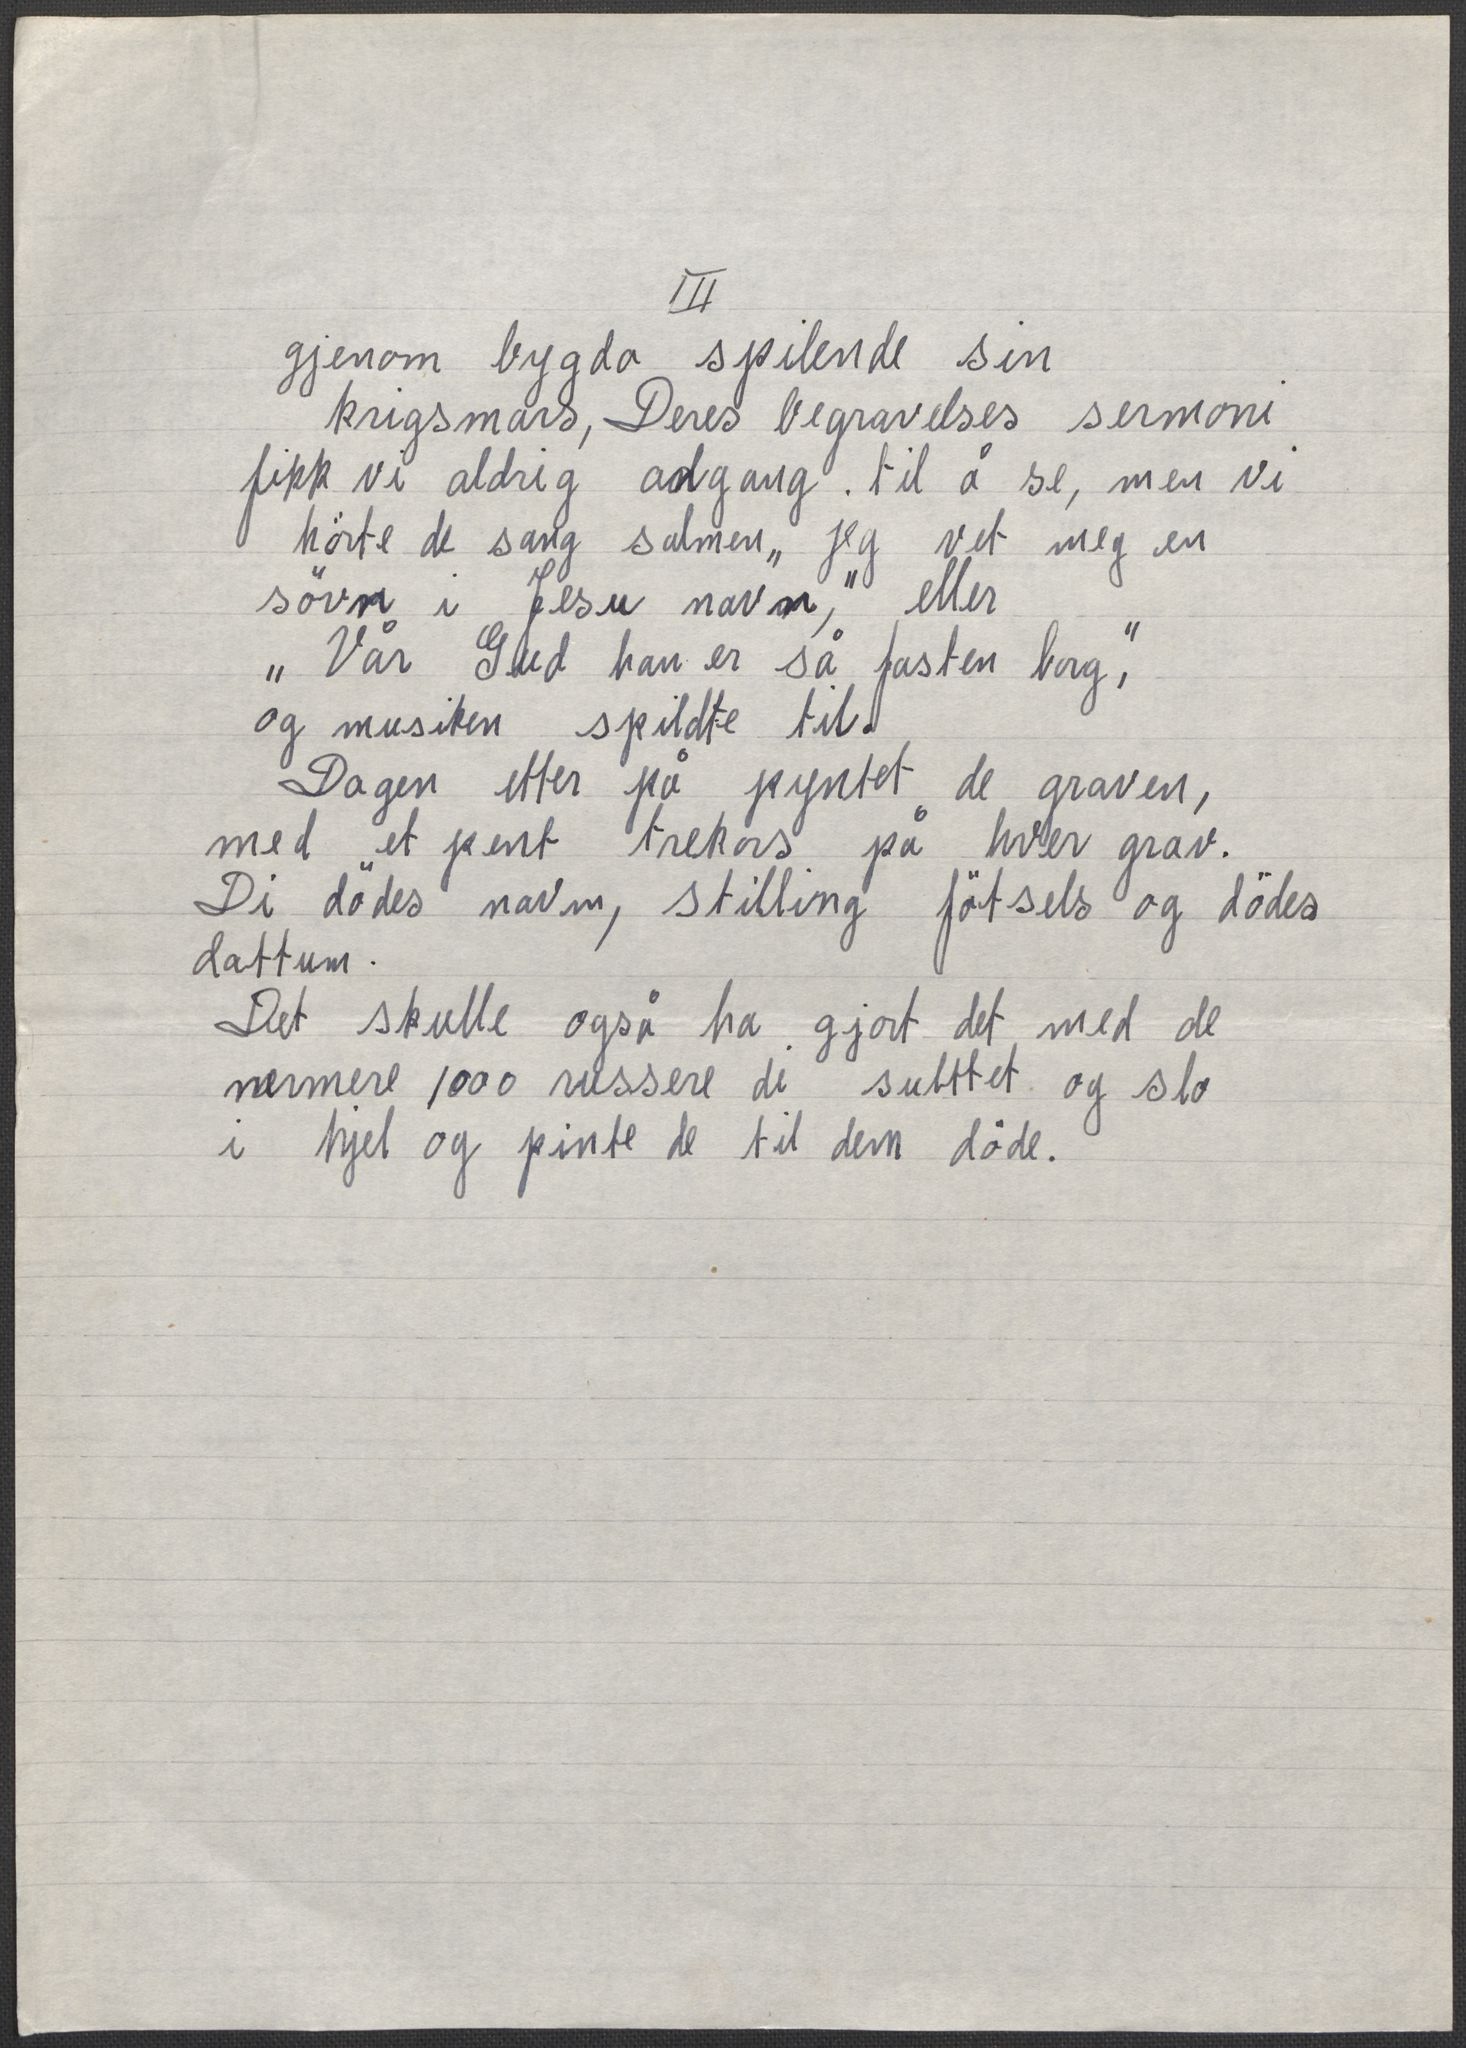 III
gjenom bygda spilende sin
krigsmars, Deres begravelses sermoni
fikk vi aldrig adgang. til å se, men vi
hörte de sang salmen „ jeg vet meg en
sövn i Jesu navn," eller
„ Vår Gud han er så fasten borg,"
og musiken spildte til.
Dagen etter på pyntet de graven,
med et pent trekors på hver grav.
Di dödes navn, stilling fötsels og dödes
dattum.
Det skulle også ha gjort det med de
nermere 1000 russere di sulttet og slo
i hjel og pinte de til dem döde.